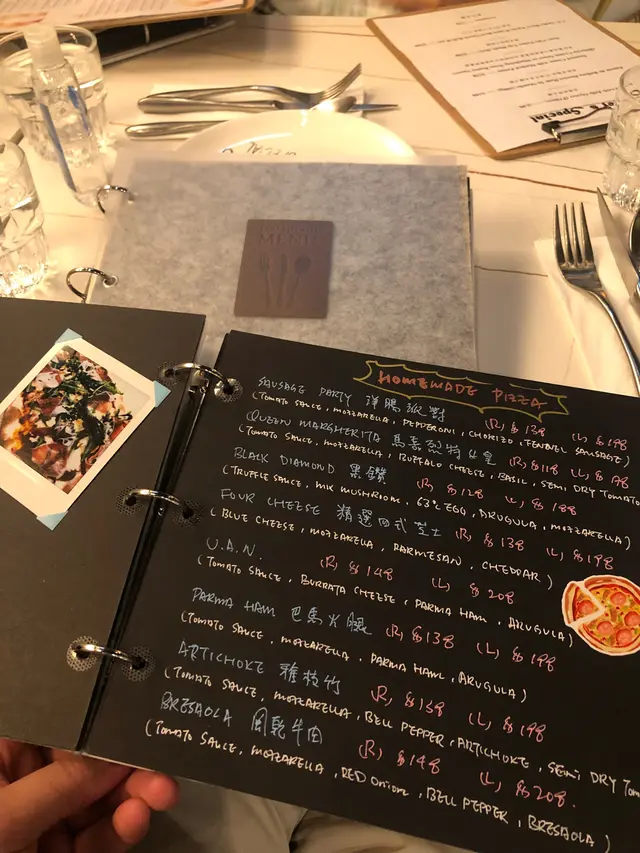 Special
MENU
HOMEMADE PIZZA
SAUSAGE PARTY 洋腸派對 (R) $138 (L) $198
(TOMATO SAUCE, MOZZARELLA, PEPPERONI, CHORIZO, FENNEL SAUSAGE)
QUEEN MARGHERITA 馬嘉烈特女皇 (R) $118 (L) $
(TOMATO SAUCE, MOZZARELLA, BUFFALO CHEESE, BASIL, SEMI DRY TOMATO
BLACK DIAMOND 黑鑽 (R) $128 (L) $188
(TRUFFLE SAUCE, MIX MUSHROOM, 63°C EGG, ARUGULA, MOZZARELLA)
FOUR CHEESE 精選四式芝士 (R) $138 (L) $198
(BLUE CHEESE, MOZZARELLA, PARMESAN, CHEDDAR)
U.A.N. (R) $148 (L) $208
(TOMATO SAUCE, BURRATA CHEESE, PARMA HAM, ARUGULA)
PARMA HAM 巴馬火腿 (R) $138 (L) $198
(TOMATO SAUCE, MOZZARELLA, PARMA HAM, ARUGULA)
ARTICHOKE 雅枝竹 (R) $138 (L) $198
(TOMATO SAUCE, MOZZARELLA, BELL PEPPER, ARTICHOKE, SEMI DRY TOM
BRESAOLA 風乾牛肉 (R) $148 (L) $208.
(TOMATO SAUCE, MOZZARELLA, RED ONION, BELL PEPPER, BRESAOLA)